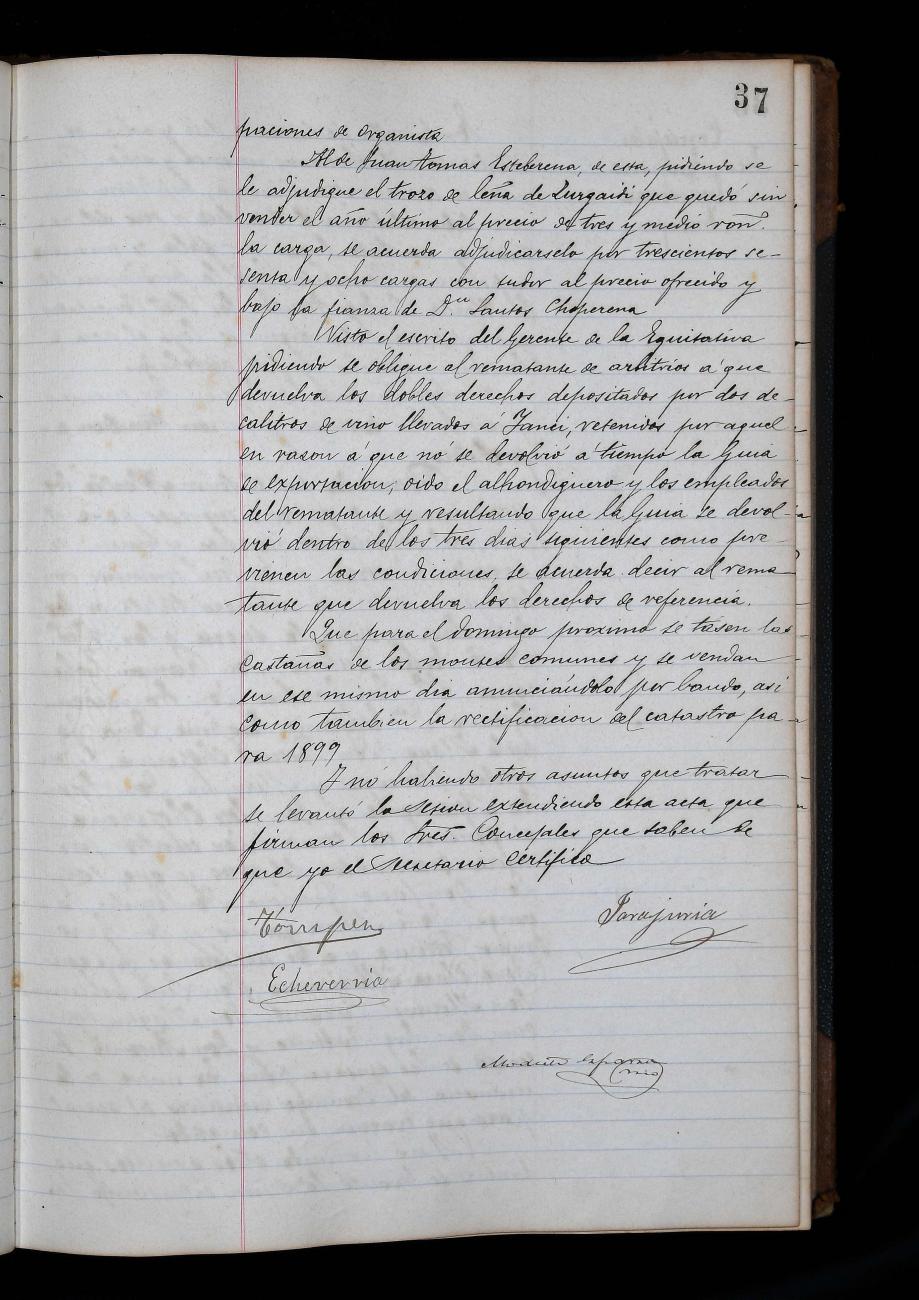 37
paciones de organista
Al de Juan tomas Esteberena, de esta, pidiendo se
le adjudique el trozo de leña de Zurgaidi que quedó sin
vender el año último al precio de tres y medio ron.
la carga, se acuerda adjudicarselo por trescientos se-
senta y ocho cargas con sudor al precio ofrecido y
bajo la fianza de D.n Santos Choperena
Visto el escrito del Gerente de la Equitativa
pidiendo se oblique al rematante de arbitrios á que
devuelva los dobles derechos depositados por dos de-
calitros de vino llevados á Yanci, retenidos por aquel
en rason á que nó se devolvió á tiempo la Guia
de exportacion; oido el alhondiguero y los empleados
del rematante y resultando que la Guia se devol-
vió dentro de los tres dias siguientes como pre-
vienen las condiciones, se acuerda decir al rema
tante que devuelva los derechos de referencia.
Que para el domingo proximo se tasen las
castañas de los montes comunes y se vendan
en ese mismo dia anunciándolo por bando, asi
como tambien la rectificacion del catastro pa-
ra 1899
Y nó habiendo otros asuntos que tratar
se levantó la sesion extendiendo esta acta que
firman los Sres. Concejales que saben de
que yo el Secretario Certifico
Tarajuria
Echeverria
Modesto Esparza